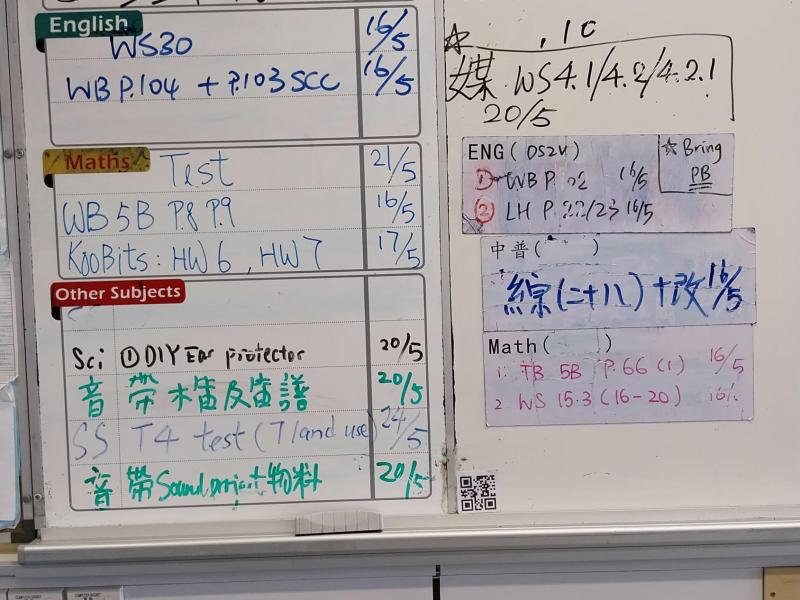 English
WS30 16/5
WB P.104 + P.103 SCC 16/5
Maths
Test 21/5
WB 5B P.8 P.9 16/5
KooBits: HW6, HW7 17/5
Other Subjects
Sci ① DIY Ear protector 20/5
音 帶 20/5
SS T4 test (T land use) 24/5
音 帶 Sound project 物料 20/5
.10
媒. WS 4.1/4.2/4.2.1
20/5
ENG ( )
☆ Bring
PB
① WB P 16/5
② LH P 22/23 16/5
中普( )
綜(二十八)十改 16/5
Math( )
1. TB 5B P.66 (1) 16/5
2 WS 15.3 (16-20) 16/